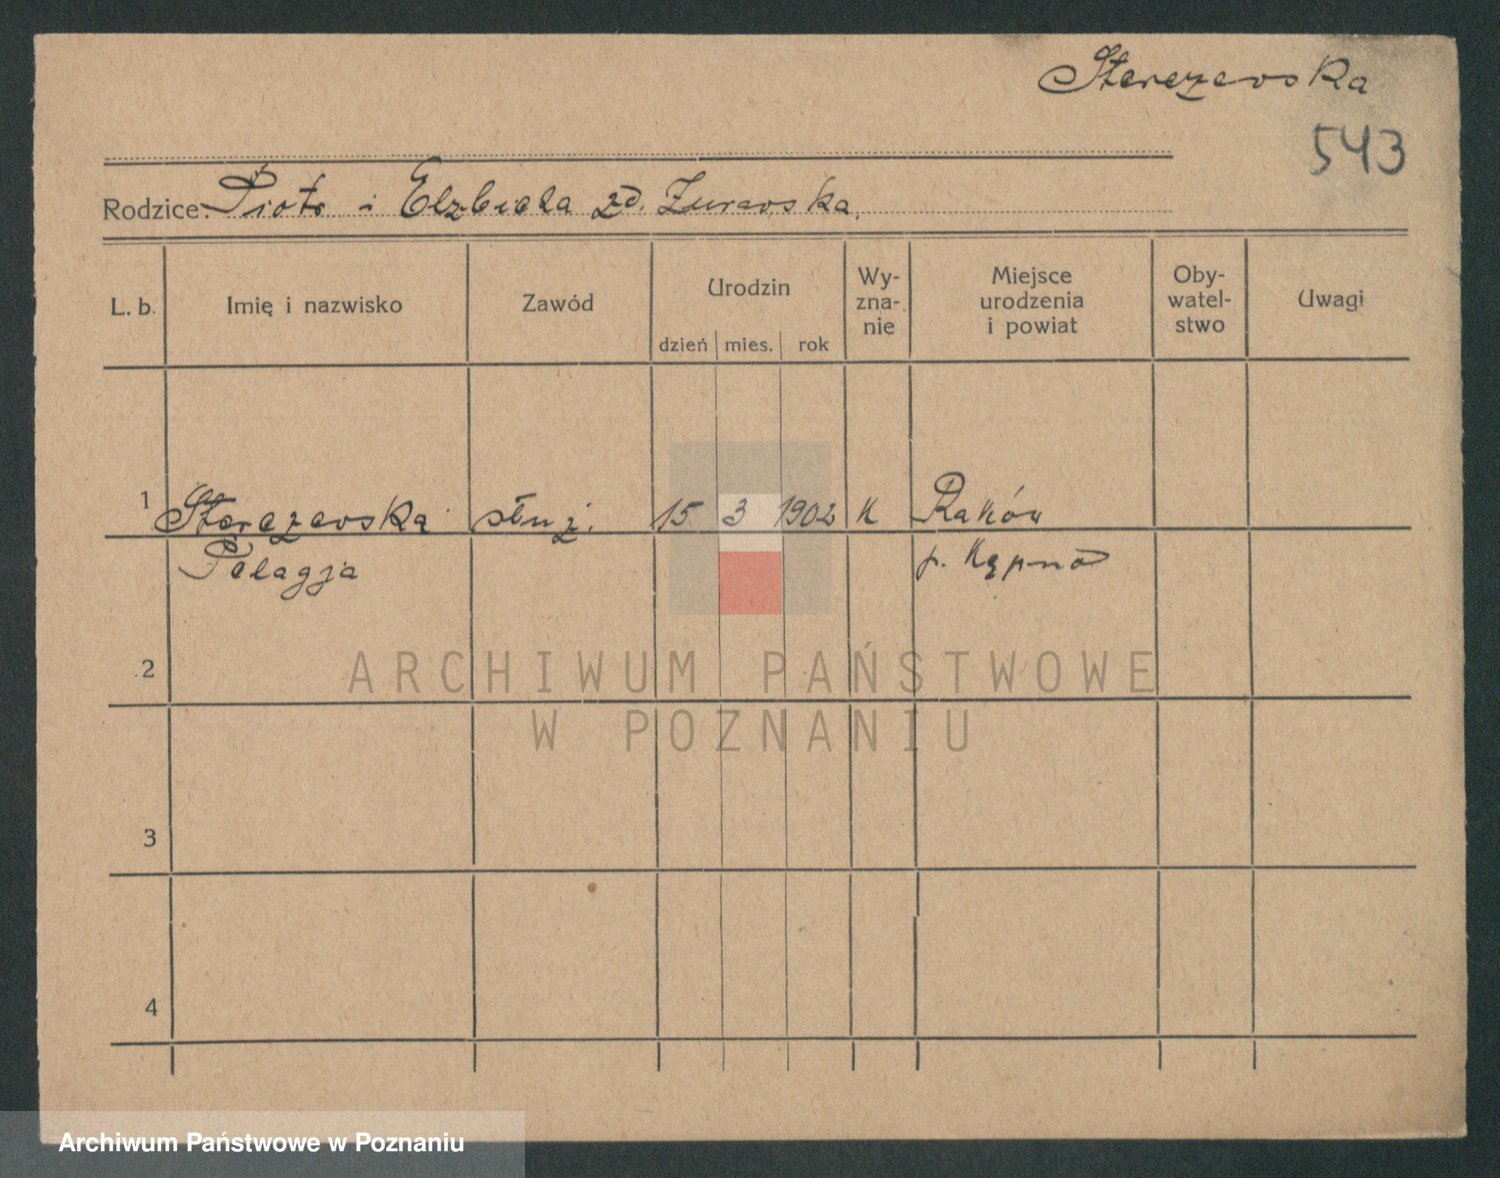 Sterczewska
543
Rodzice: Piotr i Elzbieta zd. Zurawska.
L. b. Imię i nazwisko Zawód Urodzin dzień mies. rok Wy-zna-nie Miejsce urodzenia i powiat Oby-watel-stwo Uwagi
1 Sterczewska służ. 15 3 1902 K Raków
Pelagja p. Kępno
2
ARCHIWUM PAŃSTWOWE
W POZNANIU
3
4
Archiwum Państwowe w Poznaniu